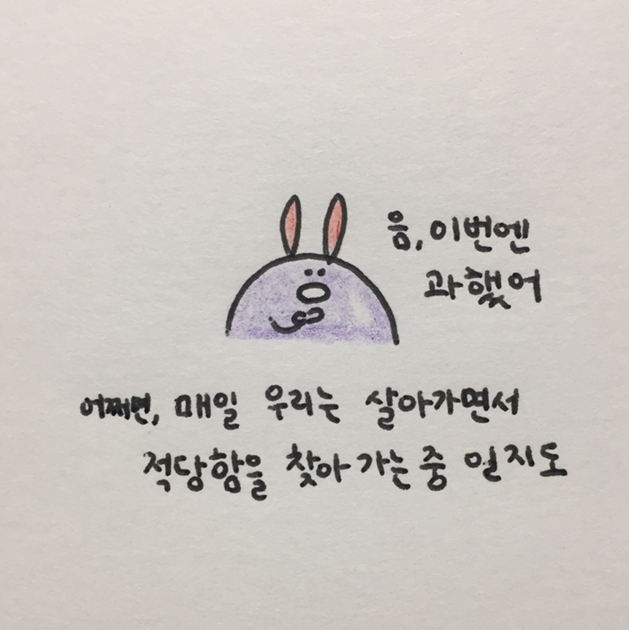 음, 이번엔
과했어
어쩌면, 매일 우리는 살아가면서
적당함을 찾아 가는 중 일지도